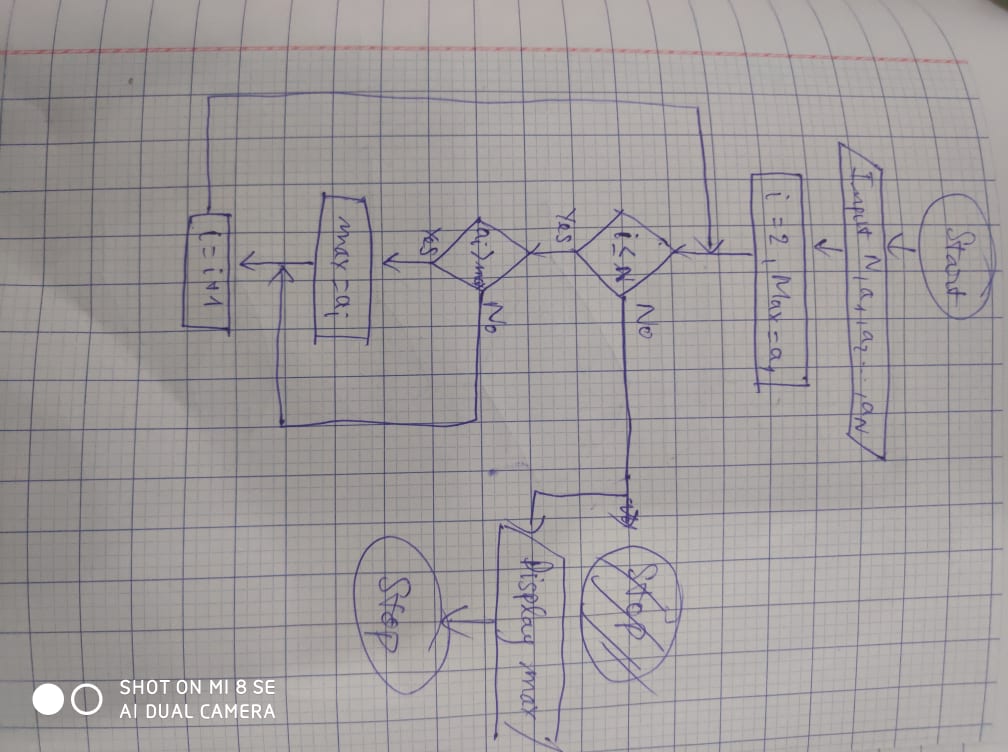 Start
Input N, a₁, a₂ ..., a_N
i = 2, Max = a₁
i ≤ N
No
Stop
Yes
Display max
ai > max
No
Yes
Stop
max = ai
i = i+1
SHOT ON MI 8 SE
AI DUAL CAMERA